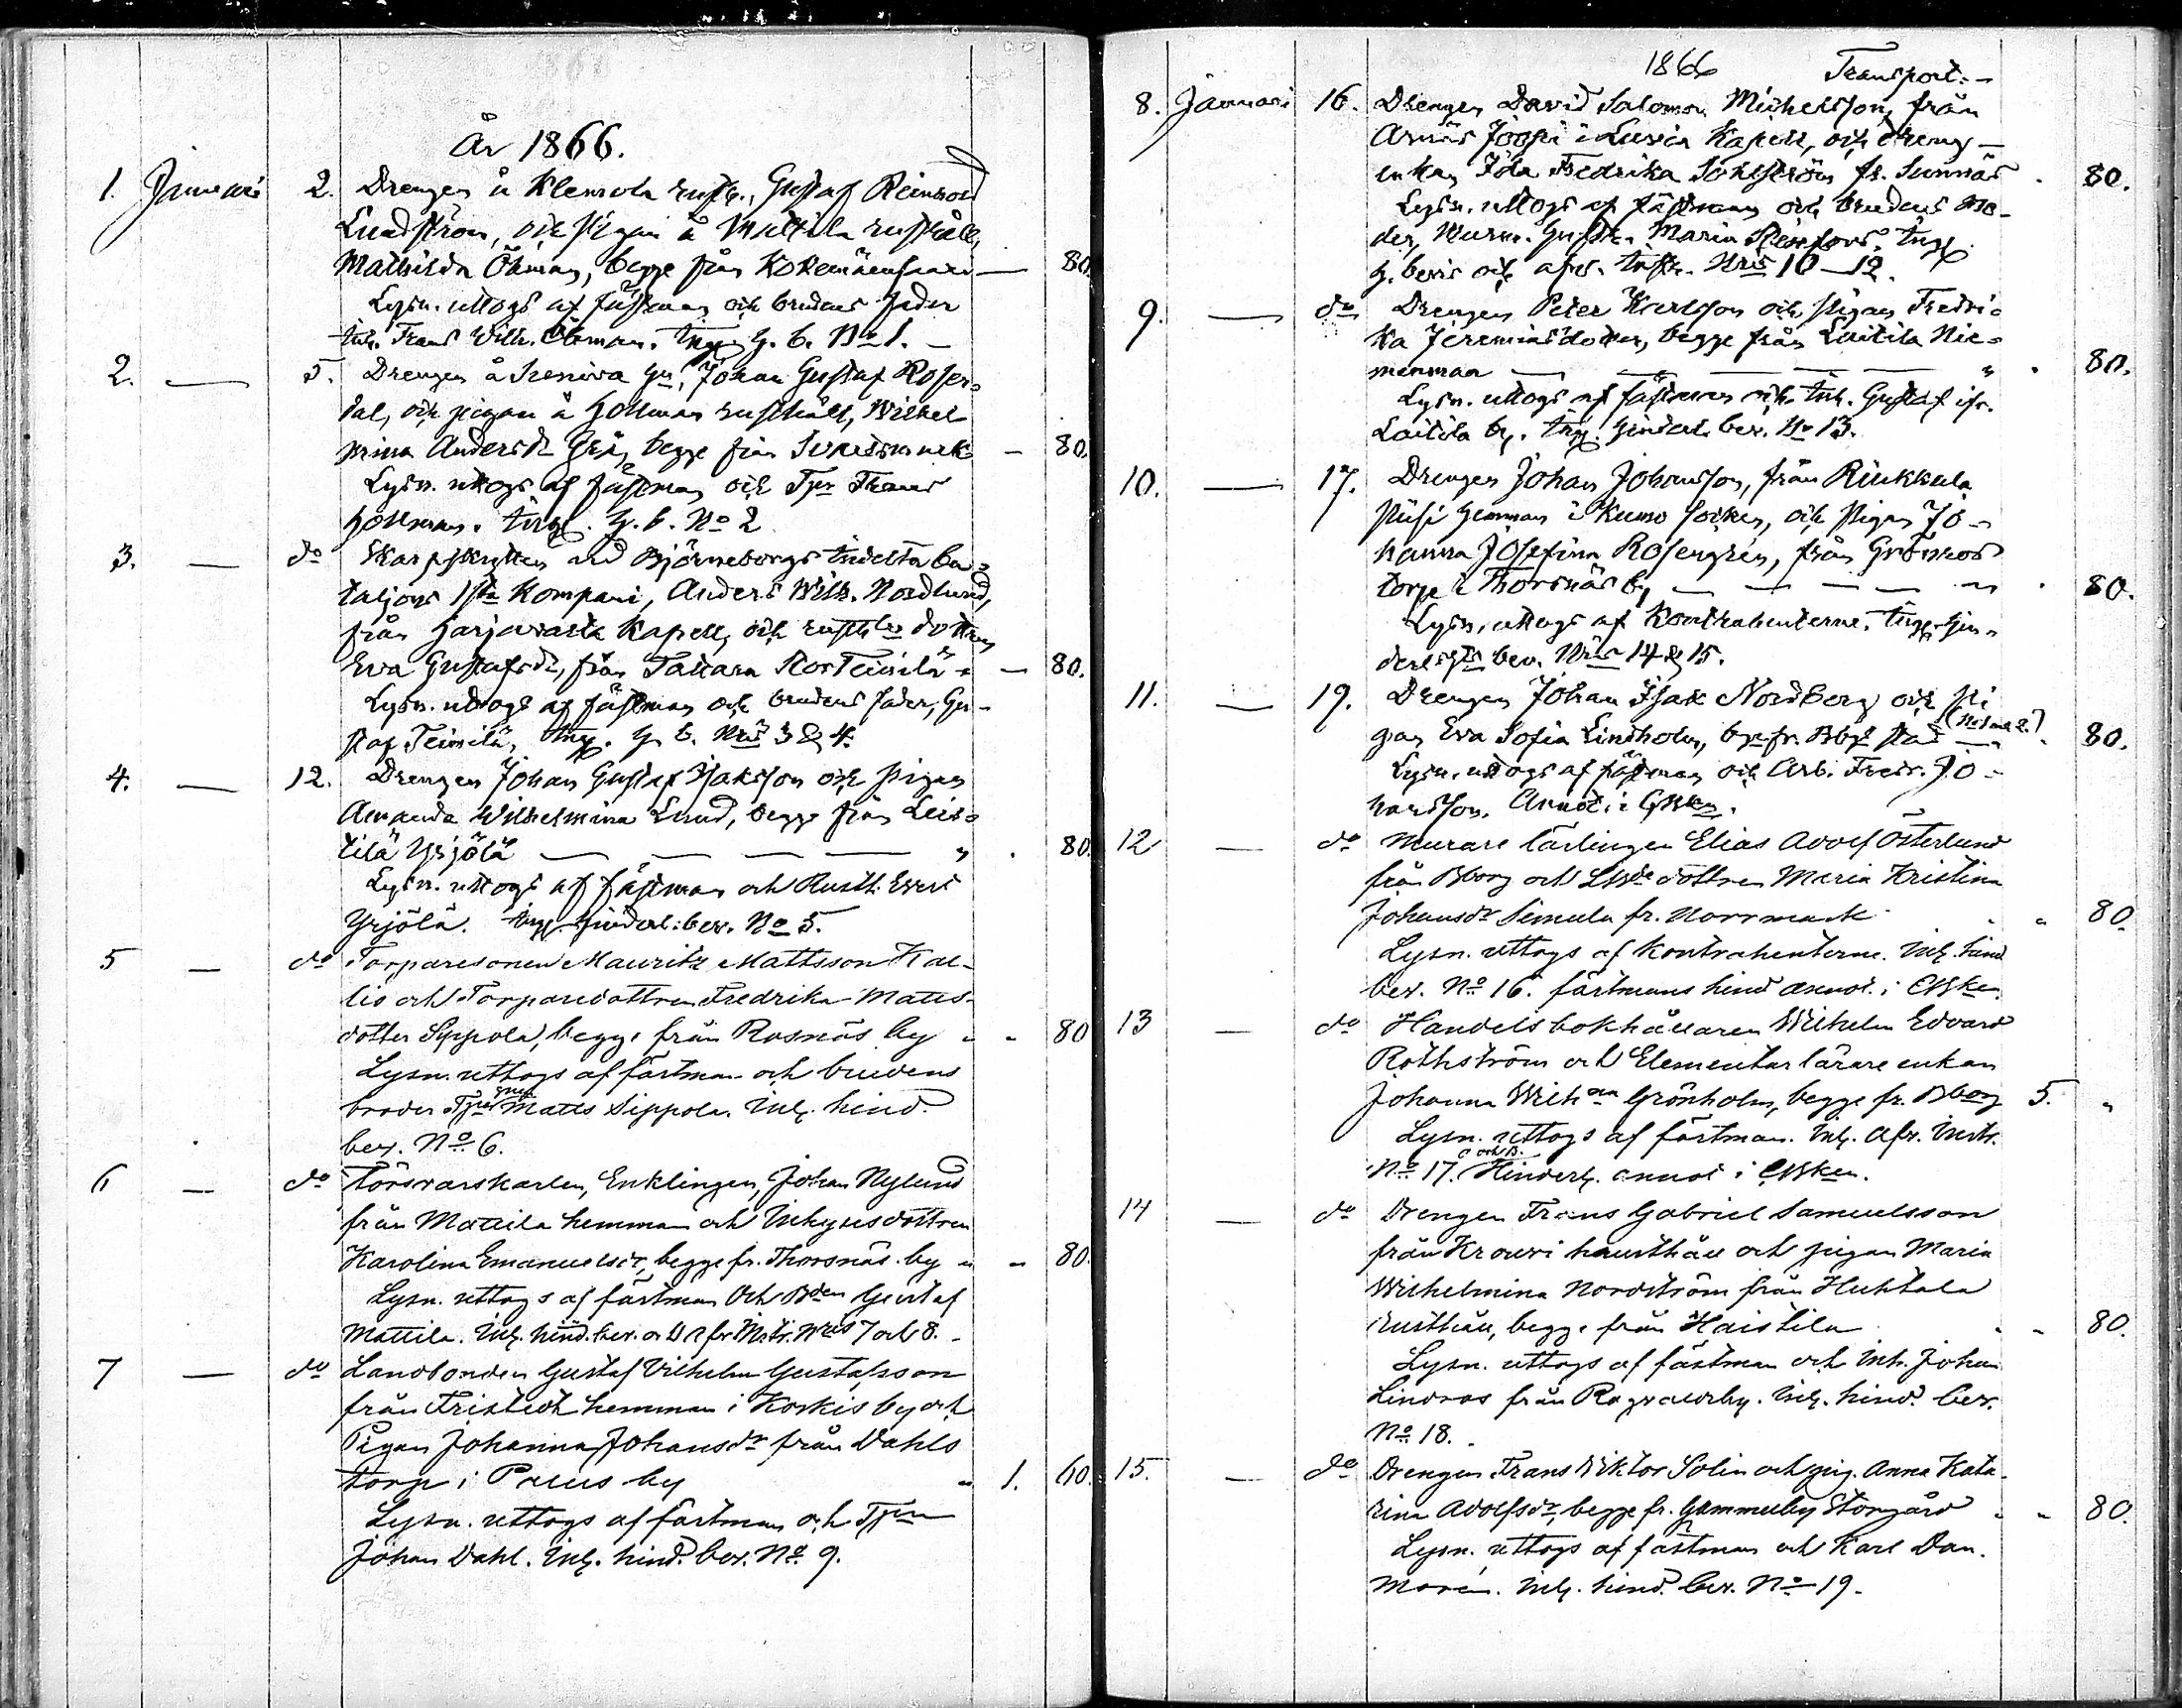 År 1866.
1. Januari 2. Drengen å Klemola rusth., Gustaf Reinhold
Lundström, och pigan å Mattila rusthåll,
Mathilda Öhman, begge från Kokemäensaari — 80.
Lysn. uttogs af fästman och brudens fader
Inh. Frans Wilh. Öhman. Ing. H. b. No 1. —
2. — 5. Drengen å Gn, Johan Gustaf Rosen-
dal, och pigan å Hollman rusthåll, Wilhel
mina Andersdr begge från Svartsmark — 80.
Lysn. uttogs af fästman och Tpr Frans
Hollman. Ingl. H. b. No 2
3. — do Skarpskytten vid Björneborgs Indelta ba-
taljons 1sta Kompani, Anders Wilh. Nordlund,
från Harjavalta Kapell, och rusths dottren
Eva Gustafsdr, från Tattara — 80.
Lysn. uttogs af fästman och brudens fader, Gu-
staf Teinilä, Ing. H. b. Nris 3 & 4.
4. — 12. Drengen Johan Gustaf Isaksson och pigan
Amanda Wilhelmina Lund, begge från Leis-
tilä Yrjölä — — — — " . 80.
Lysn. uttogs af fästman och Rusth.
Yrjölä. Ing. Hinderl: bev. No 5.
5 — do Torparesonen Mauritz Mattsson Kal-
lio och Torparedottren Fredrika Matts-
dotter Sippola, begge från Rosnäs by " - 80
Lysn. uttogs af fästman och brudens
broder Matts Sippola. Inl. hind.
bev. No 6.
6 — do Försvarskarlen, Enklingen, Johan Nylund
från Mattila hemman och Inhysesdottren
Karolina Emanuelsdr, begge fr. Thorsnäs by " - 80.
Lysn. uttogs af fästman och Bden Gustaf
Mattila. Inl. hind. bev. Nris 7 och 8. -
7 — do Landbonden Gustaf Vilhelm Gustafsson
från Fristedt hemman i Koskis by och
Pigan Johanna Johansdr från Dahls
torp i Påmis by " 1. 60.
Lysn. uttogs af fästman och Tpn
Johan Dahl. Inl. hind. bev. No 9.
1866 Transport: —
8. Januari 16. Drengen David Salomon Michelsson, från
Arnäs Jööpi i Luvia Kapell, och dreng-
enkan Ida Fredrika Sohlström fr. Sunnäs . 80.
Lysn. uttogs af fästman och brudens mo-
der, Maria Ing.
H. bevis och afvi. Instr. Nris 10—12.
9. — do Drengen Peter Karlsson och pigan Fredri-
ka Jeremiasdotter, begge från Laitila Nie-
menmaa — — — — " . 80.
Lysn. uttogs af fästman och Inh. Gustaf
Laitila by. Ing. Hinderl. bev. No 13.
10. — 17. Drengen Johan Johansson, från Riukkala
hemman i Kumo socken, och pigan Jo-
hanna Josefina Rosengrén, från Grönroos
torp i Thorsnäs by — — — — . 80.
Lysn. uttogs af Kontrahenterne. Ing. Hin-
derl. bev. Nris 14 & 15.
11. — 19. Drengen Johan Isak Nordberg och pi
gan Eva Sofia Lindholm, bge fr. Bbgs stad — . 80.
Lysn. uttogs af fästman och Arb. Fredr. Jo-
hansson. Annot. i
12 — do Murare lärlingen Elias Adolf Österlund
från Bborg och dottren Maria Kristina
Johansdr Simula fr. Norrmark . " 80.
Lysn. uttogs af Kontrahenterne. Inl. hind
bev. No 16. fästmans hind annot. i
13 — do Handelsbokhållaren Wilhelm Edvard
Rothström och Elementarlärare enkan
Johanna Wilhna Grönholm, begge fr. Bborg 5. "
Lysn. uttogs af fästman. Inl. Afv. Instr.
No 17. Hinderl. annot i
14 — do Drengen Frans Gabriel Samuelsson
från Krouvi rusthåll och pigan Maria
Wilhelmina Nordström från Huhtala
rusthåll, begge från Haistila . - 80.
Lysn. uttogs af fästman och Inh. Johan
Lindroos från Ragvaldsby. Inl. hind. bev.
No 18.
15. — do Drengen Frans Viktor Solin och pig. Anna Kata-
rina Adolfsdr, begge fr. Gammelby Storgård . - 80.
Lysn. uttogs af fästman och Karl Dan.
Morén. Inl. hind. bev. No 19.